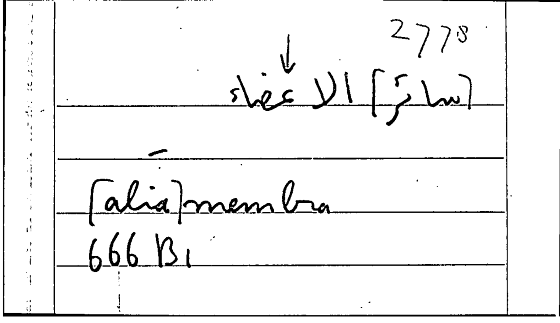 2778
[سائر] الاعضاء
[alia] membra
666 B1